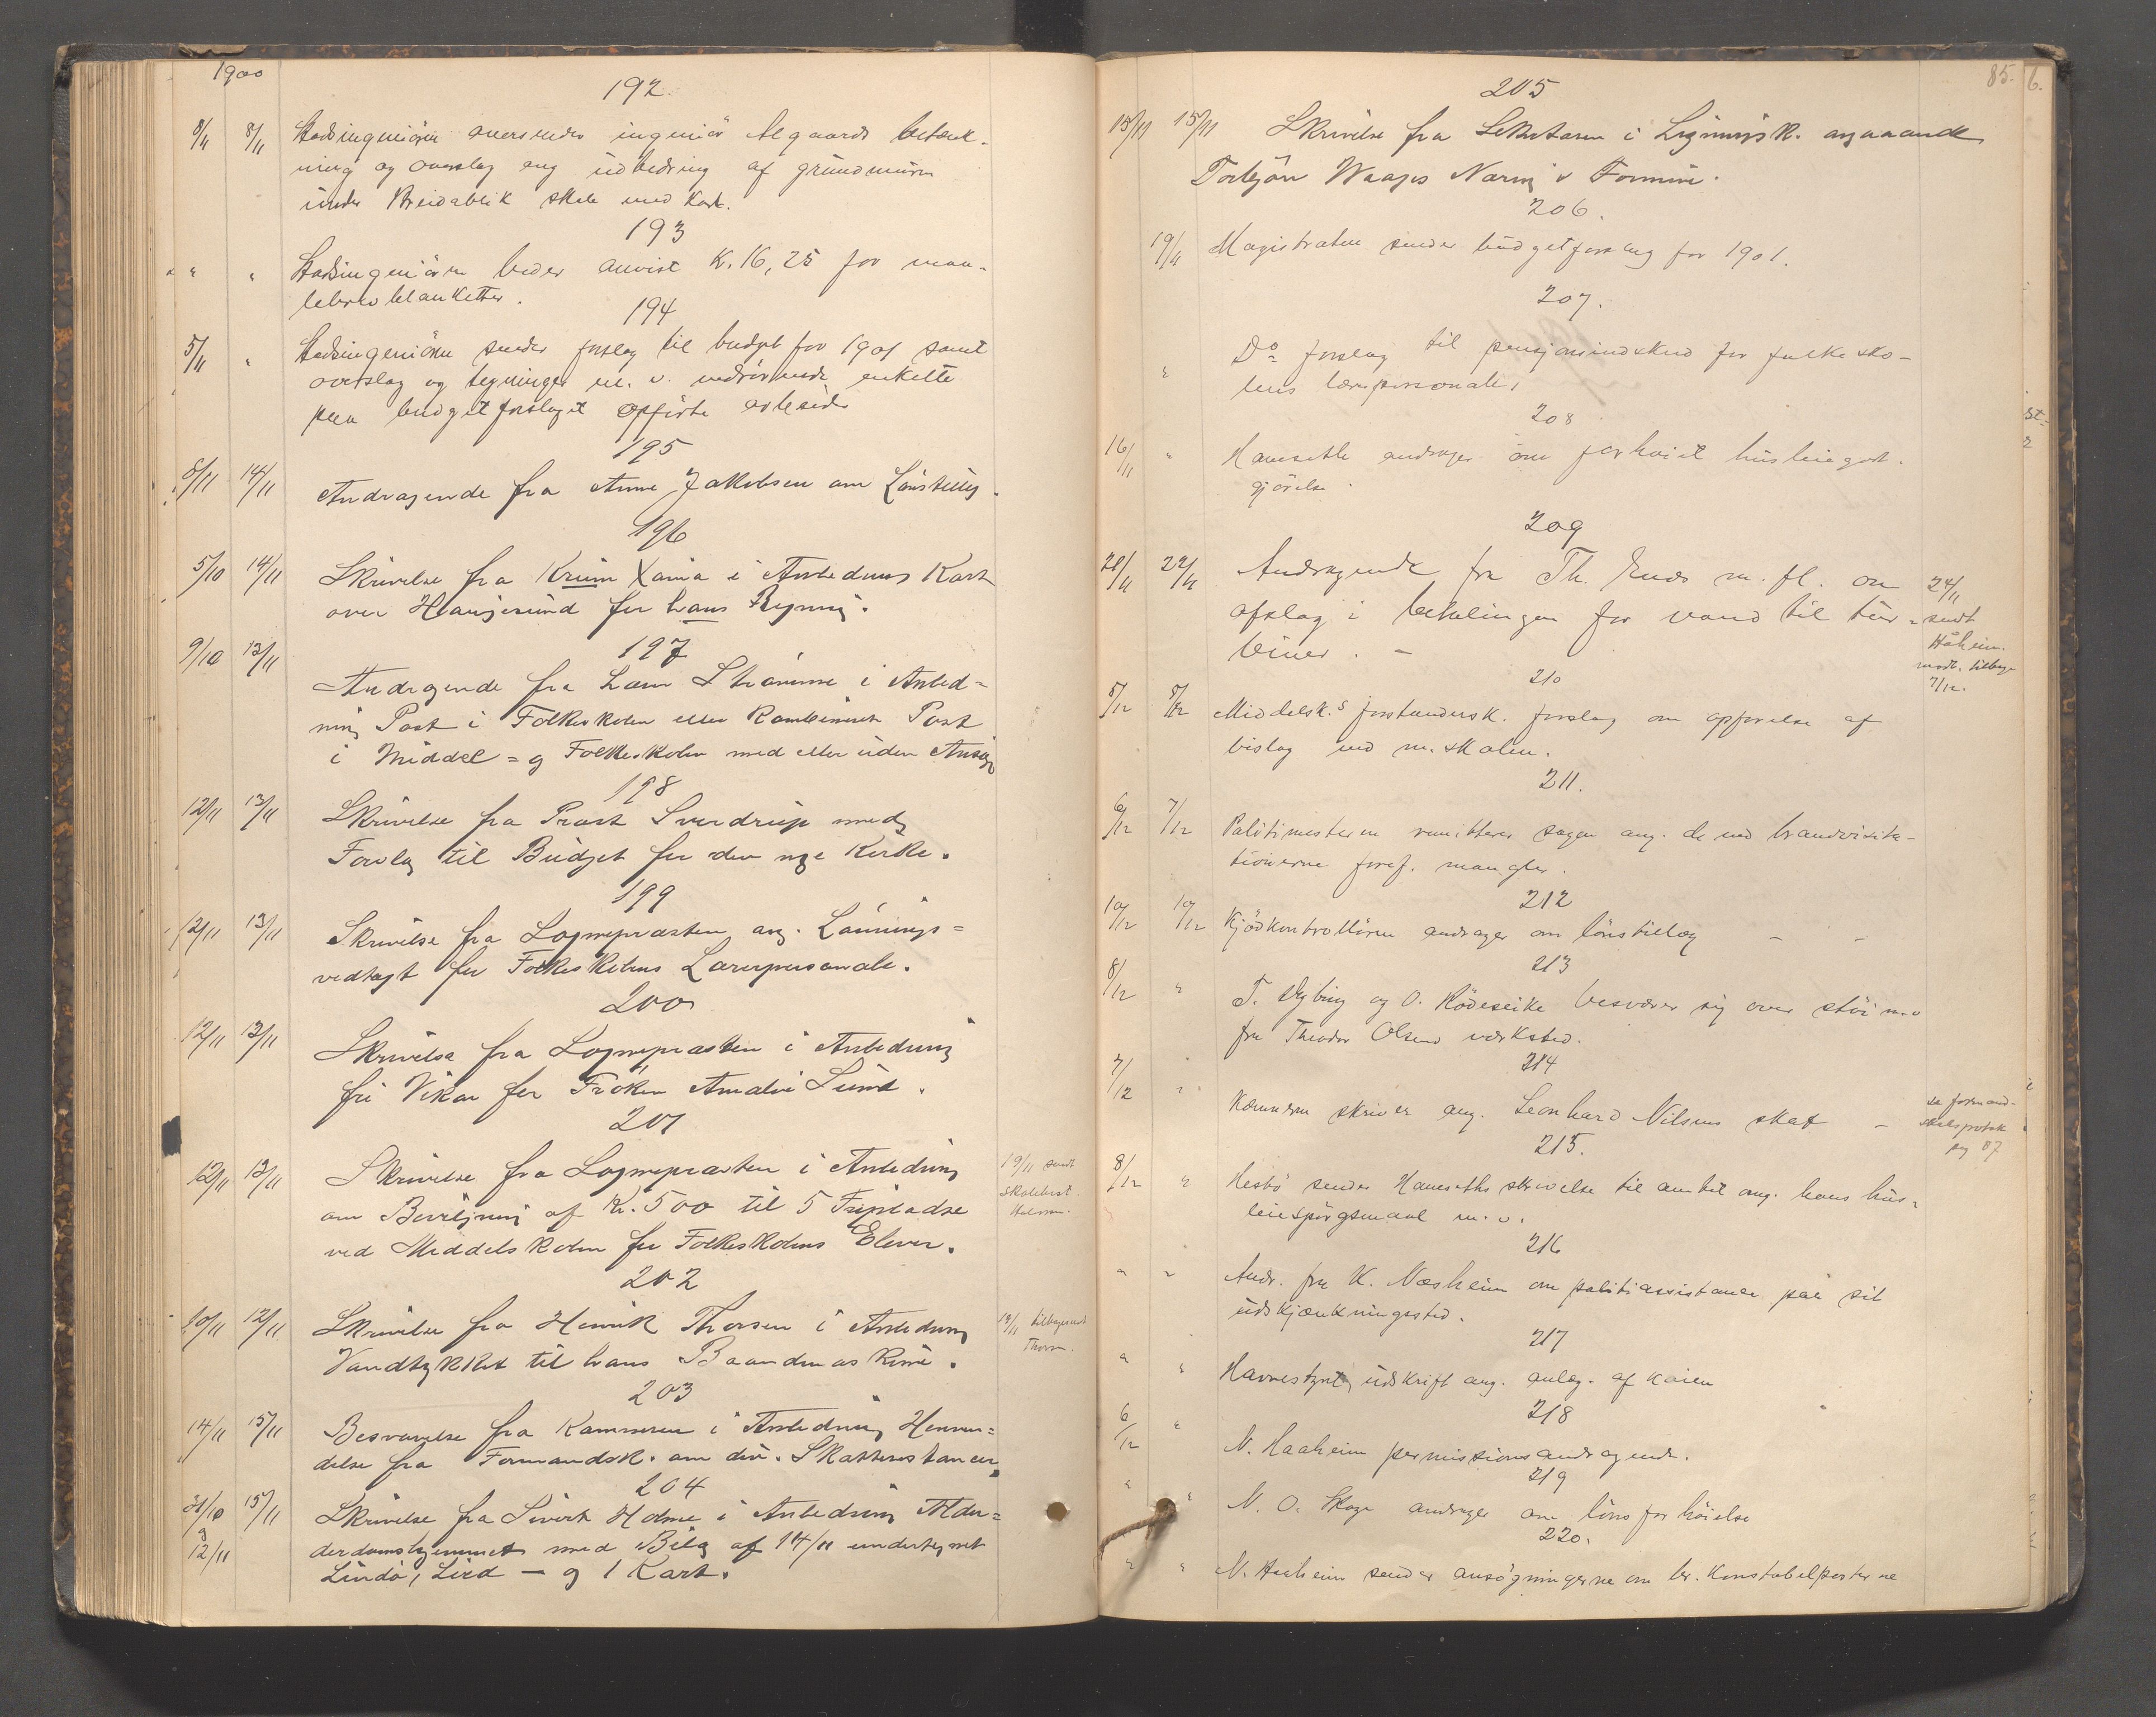 1900
192.
8/11 8/11 Stadsingeniören oversender ingeniör Aegaards betænk-
ning og overslag ang udbedring af grundmuren
under Breidablik skole med kart.
193
" " Stadsingeniören beder anvist K. 16,25 for maa-
lebrevblanketter.
194
5/11 " Stadsingeniören sender forslag til budget for 1901 samt
overslag og tegninger m. v. vedrörende enkelte
paa budgetforslaget opförte arbeider
195
8/11 14/11 Andragende fra Anne Jakobsen om Lönstillæg.
196
5/10 14/11 Skrivelse fra Krum Xania i Anledning Kart
over Haugesund for hans Regning.
197
9/10 13/11
Andragende fra Lars Strömme i Anled-
ning Post i Folkeskolen eller kombineret Post
i Middel= og Folkeskolen med eller uden
198
12/11 13/11 Skrivelse fra Prost Sverdrup med
Forslag til Budget for den nye Kirke.
199
12/11 13/11 Skrivelse fra Sognepræsten ang. Lönnings=
vedtægt for Folkeskolens Lærerpersonale.
200
12/11 13/11 Skrivelse fra Sognepræsten i Anledning
fri Vikar for Fröken Amalie Lund.
201
12/11 13/11 Skrivelse fra Sognepræsten i Anledning
om Bevilgning af Kr. 500 til 5 Fripladse
ved Middelskolen for Folkeskolens Elever.
19/11 sendt
skolebest.
202
10/11 12/11 Skrivelse fra Henrik Thorsen i Anledning
Vandtrykket til hans Baandmaskine.
tilbagesendt
Thorsen.
203
14/11 15/11 Besvarelse fra Kæmneren i Anledning Henven=
delse fra Formandsk. om div. Skatterestancer,
204
31/10 15/11 Skrivelse fra Sivert Holme i Anledning Alder=
og
12/11 derdomshjemmet med Bilag af 14/11 undertegnet
Lindö, Lied — og 1 Kart.
85.
205
15/11 15/11 Skrivelse fra Sekretæren i Ligningsk. angaaende
Torbjörn Waages Næring & Formue.
206.
19/11 Magistraten sender budgetforslag for 1901.
207.
" Do forslag til pensjonsindskud for folkesko-
lens lærerpersonale,
208
16/11 " Hanseth andrager om forhöiet husleiegodt-
gjörelse.
209
20/11 22/11 Andragende fra Th. m. fl. om
afslag i betalingen for vand til tur-
biner. —
24/11
sendt
Håheim.
modt. tilbage
7/12.
210
5/12 5/12 Middelsk.s forstandersk. forslag om opförelse af
bislag ved m. skolen.
211.
6/12 7/12 Politimesteren remitterer sagen ang. de ved brandvisita-
tionerne foref. mangler.
212
10/12 10/12 Kjödkontrollören andrager om lönstillæg — —
213
8/12 " T. Nybring og O. Rödeseike besværer sig over stöi m. v
fra Theodor Olsens værksted.
214
7/12 " Kæmneren skriver ang. Leonhard Nilsens skat —
se formand-
skabsprotok
pag 87
215.
8/12 " Hesbö sender Hanseths skrivelse til amtet ang. hans hus-
leiespörgsmaal m. v.
216
" " Andr. fra K. Næsheim om politiassistance paa sit
udskjænkningssted.
217
" " Havnestyrets udskrift ang. anlæg. af kaien
218
6/12 " N. Haaheim permissionsandragende.
219
" " N. O. Skoge andrager om lönsforhöielse
220.
" " N. Haaheim sender ansögningerne om kr. konstabelposterne